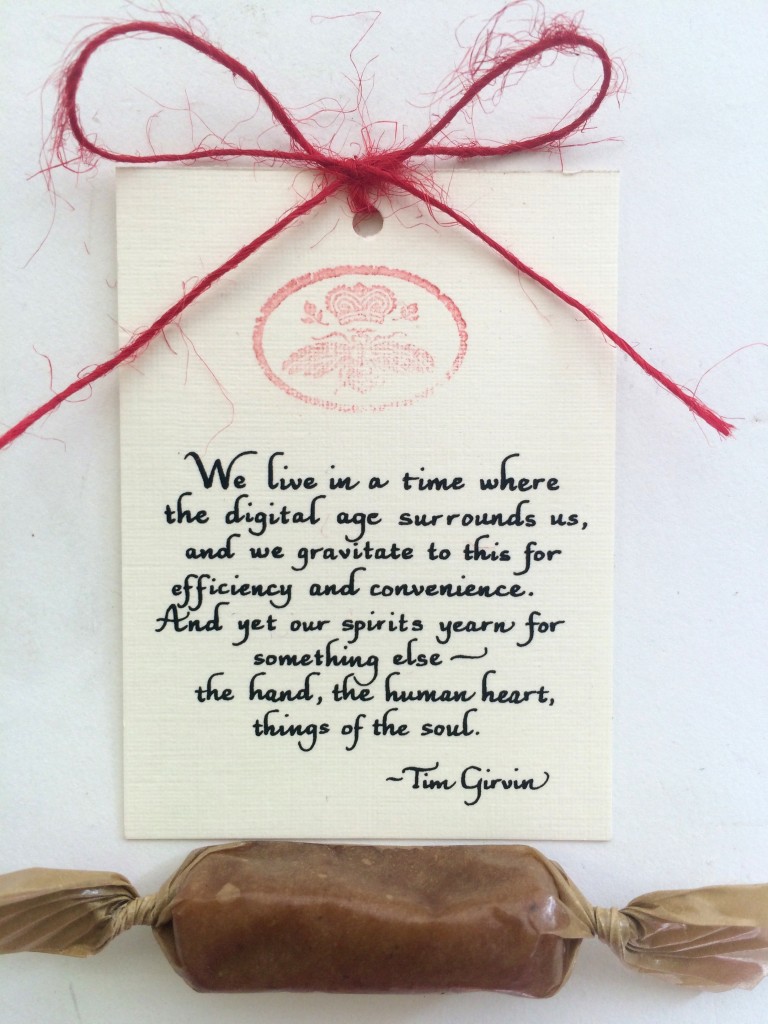 We live in a time where
the digital age surrounds us,
and we gravitate to this for
efficiency and convenience.
And yet our spirits yearn for
something else ~
the hand, the human heart,
things of the soul.
~Tim Girvin